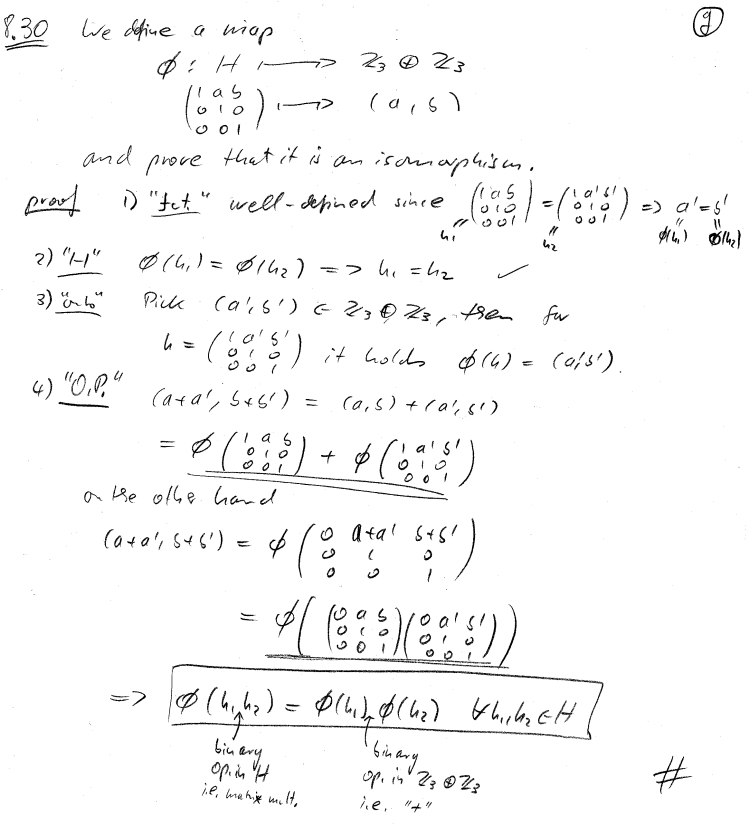 8.30 We define a map
9
ϕ : H ⟼ ℤ₃ ⊕ ℤ₃
(1 a b
0 1 0
0 0 1) ⟼ (a, b)
and prove that it is an isomorphism.
proof 1) "fct." well-defined since (1 a b
0 1 0
0 0 1) = (1 a' b'
0 1 0
0 0 1) => a' = b'
h₁ h₂ ϕ(h₁) ϕ(h₂)
2) "1-1" ϕ(h₁) = ϕ(h₂) => h₁ = h₂ ✓
3) "onto" Pick (a', b') ∈ ℤ₃ ⊕ ℤ₃, then for
h = (1 a' b'
0 1 0
0 0 1) it holds ϕ(h) = (a', b').
4) "O.P." (a+a', b+b') = (a, b) + (a', b')
= ϕ (1 a b
0 1 0
0 0 1) + ϕ (1 a' b'
0 1 0
0 0 1)
on the other hand
(a+a', b+b') = ϕ (0 a+a' b+b'
0 1 0
0 0 1)
= ϕ( (0 a b
0 1 0
0 0 1) (0 a' b'
0 1 0
0 0 1) )
=> ϕ(h₁h₂) = ϕ(h₁) ϕ(h₂) ∀h₁,h₂ ∈ H
binary binary
op. in H op. in ℤ₃ ⊕ ℤ₃
i.e. matrix mult. i.e. "+"
#